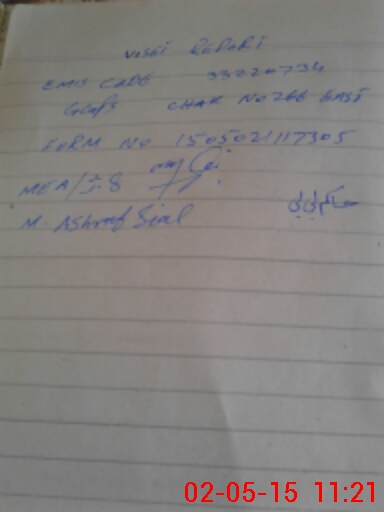 VISIT REPORT
EMIS CODE 33220734
GGPS CHAK NO 266 EAST
FORM NO 1505021117305
MEA/J-8
M. Ashraf Sial
02-05-15 11:21